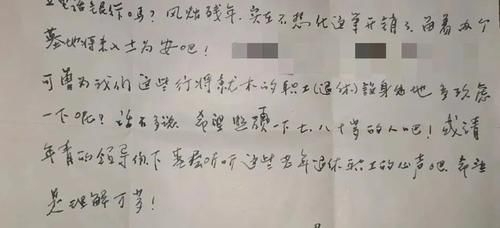 风烛残年，实在不想花这笔开销了，留着两个
墓地将来入土为安吧！
可曾为我们这些行将就木的职工(退休)设身处地多考虑
一下呢？话不多说，希望照顾一下七、八十岁的人吧！或请
年青的领导们下基层听听这些老年退休职工的心声吧，希望
是理解万岁！